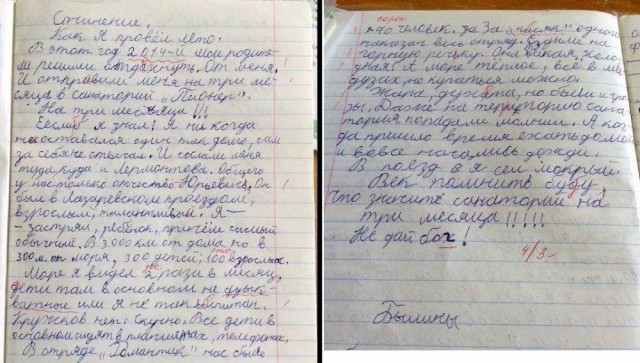 Сочинение.
Как я провёл лето.
В этот год 2014-й мои родите-
ли решили отдохнуть. От меня.
И отправили меня на три ме-
сяца в санаторий "Пионер".
На три месяца!!!
Еслиб я знал! Я ни когда
не оставался один так долго, сам
за себя не отвечал. И сослали меня
туда куда и Лермонтова. Общего
у нас только отчество Юрьевич. Он
был в Лазаревском проездом,
взрослый, талантливый. Я —
— застрял, ребёнок, причём самый
обычный. В 3000 км от дома, но в
300 м. от моря, 300 детей, 100 взрослых.
это
Море я видел 2 раза в месяц,
две
дети там в основном не адыкватные или я не так воспитан.
Кружков нет. Скучно. Все дети в
основном сидят в планшетах, телефонах.
В отряде "Романтик" нас было
сорок
40 человек. За одного
наказан весь отряд. Ездили на
горную речку. Она дикая, холо-
дная. А море тёплое, всё в ме-
дузах, но купаться можно.
Жара, духота, но были и гро-
зы. Даже на территорию сана-
тория попадали молнии. А ког-
да пришло время ехать домой
и вовсе начались дожди.
В поезд я сел мокрый.
Век помнить буду,
что значит санаторий на
три месяца!!!!!
Не дай бох!
4/3-
Былины